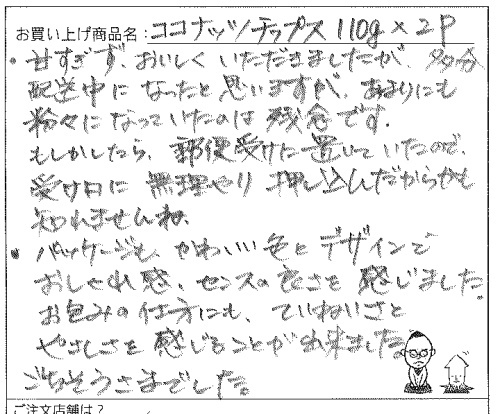 お買い上げ商品名：ココナッツチップス 110g×2P
・甘すぎず、おいしくいただきましたが、多分
配送中になったと思いますが、あまりにも
粉々になっていたのは残念です。
もしかしたら、郵便受けに置いていたので、
受け口に無理やり押し込んだからかも
知れませんね。
・パッケージも、かわいい色とデザインで
おしゃれ感、センスの良さを感じました。
お包みの仕方にも、ていねいさと
やさしさを感じることが出来ました。
ごちそうさまでした。
ご注文店舗は？